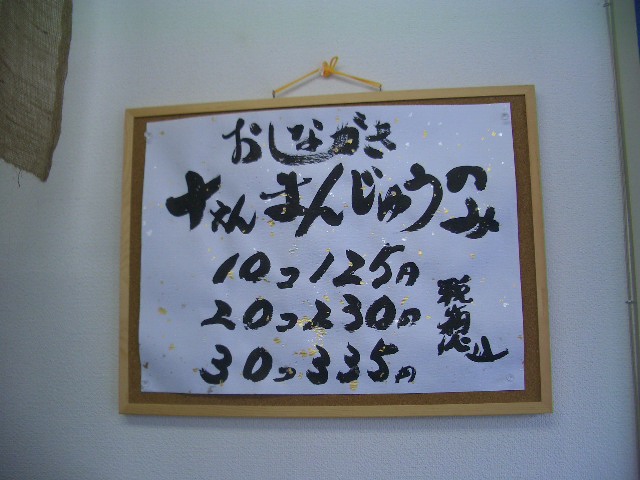 おしながき
十えんまんじゅうのみ
10コ125円
20コ230円
30コ335円
税箱代込